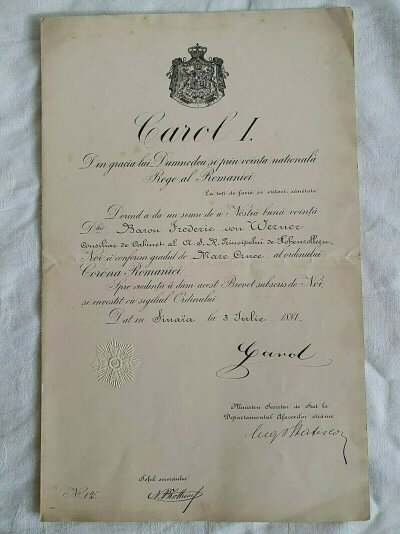 Carol I.
Din gracia lui Dumnedeu si prin vointa nationalâ
Rege al Romaniei
La toti de faciă și viitori, sănătate
Dorind a da un semn de a Nostra bună voință
D lui Baron Frederic von Werner
Consiliar de Cabinet al A. S. R. Principelui de Hohenzollern,
Noi ii conferim gradul de Mare Cruce al ordinului
Corona Romaniei
Spre credentă ii dăm acest Brevet subscris de Noi
si investit cu sigilul Ordinului
Dat in Sinaïa la 3 Iulie 1881.
Carol
Ministru Secretar de Stat la
Departamentul Afacerilor străine
Șeful serviciului
No. 12